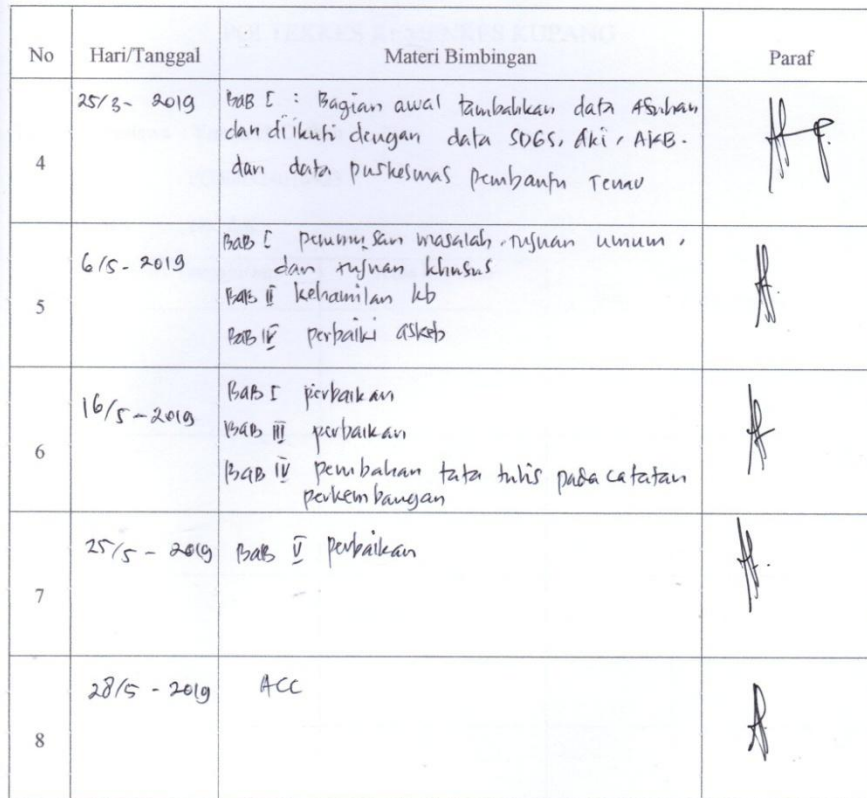 No Hari/Tanggal Materi Bimbingan Paraf
4 25/3- 2019 BaB I : Bagian awal tambahkan data Asuhan
dan diikuti dengan data SDGS, Aki, AKB.
dan data puskesmas pembantu Tenau
5 6/5 - 2019 BaB I perumusan masalah, tujuan umum,
dan tujuan khusus
BaB II kehamilan kb
BaB IV perbaiki askeb
6 16/5 - 2019 BaB I perbaikan
BaB III perbaikan
BaB IV perubahan tata tulis pada catatan
perkembangan
7 25/5 - 2019 BaB V perbaikan
8 28/5 - 2019 ACC